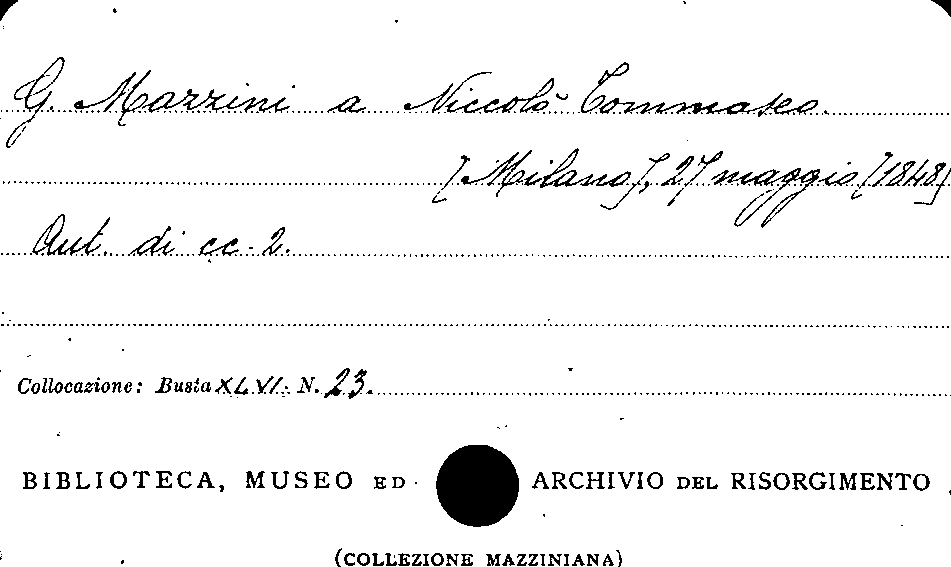 G. Mazzini a Niccolò Tommaseo.
[Milano], 27 maggio [1848]
Aut. di cc. 2.
Collocazione: Busta XLVI. N. 23.
BIBLIOTECA, MUSEO ED ARCHIVIO DEL RISORGIMENTO
(COLLEZIONE MAZZINIANA)